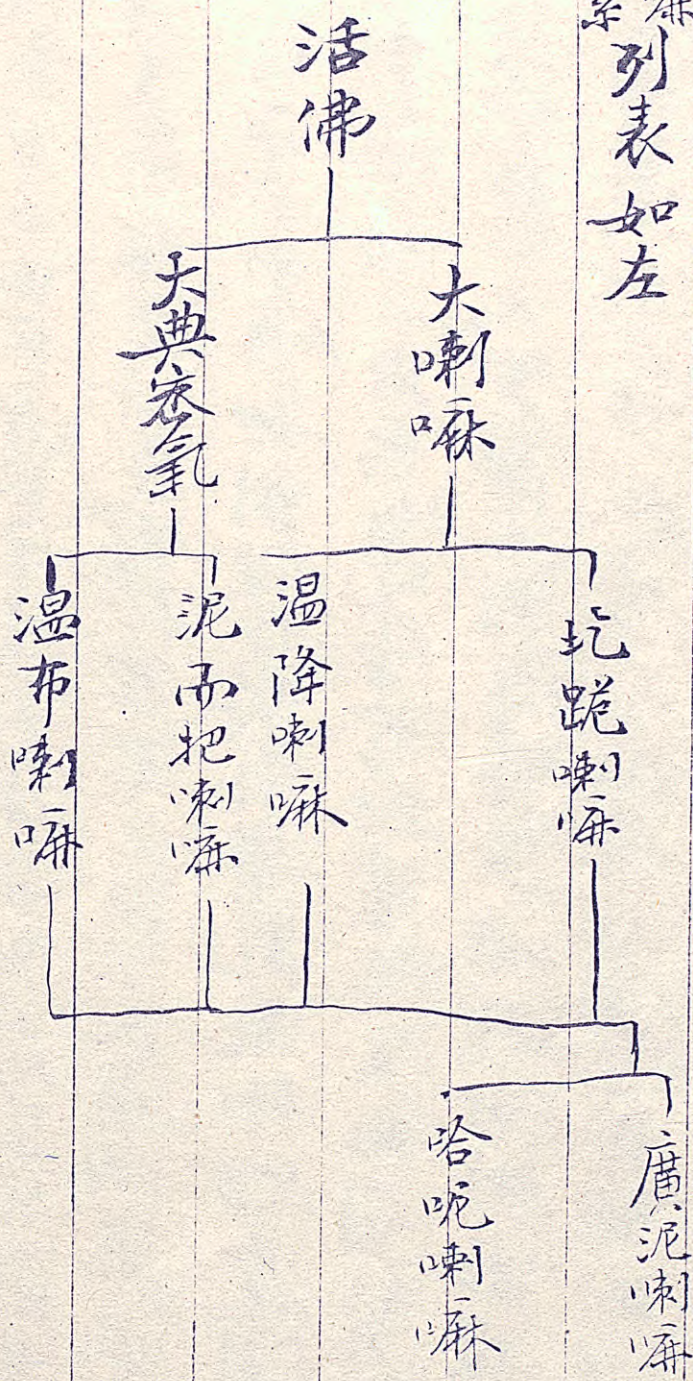 系列表如左
活佛
大喇嘛
大典窓氧
圪跪喇嘛
温降喇嘛
泥而把喇嘛
温布喇嘛
廣泥喇嘛
哈呢喇嘛